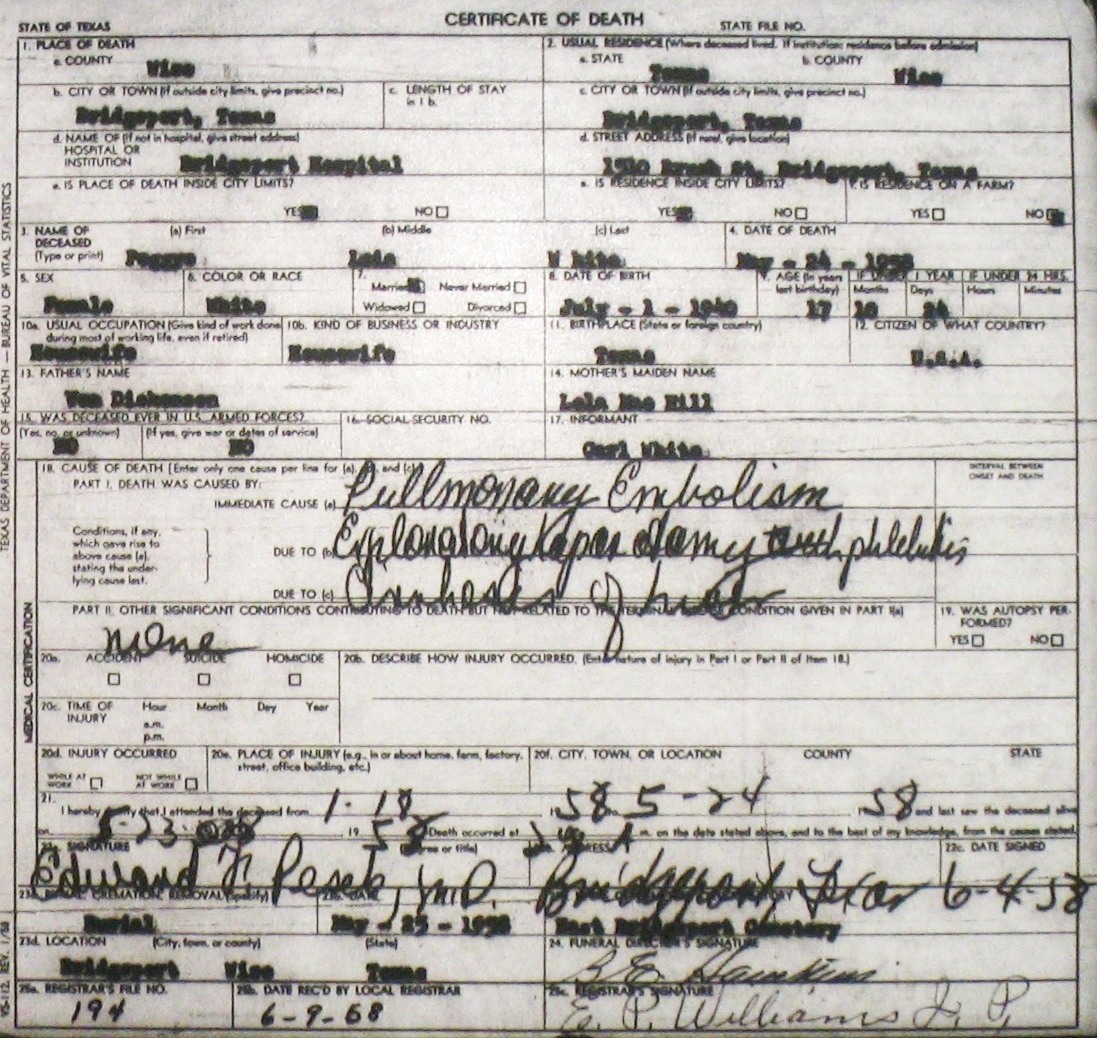 CERTIFICATE OF DEATH
STATE OF TEXAS STATE FILE NO.
1. PLACE OF DEATH
a. COUNTY Wise
2. USUAL RESIDENCE (Where deceased lived. If institution: residence before admission)
a. STATE Texas b. COUNTY Wise
b. CITY OR TOWN (If outside city limits, give precinct no.) Bridgeport, Texas
c. LENGTH OF STAY in 1 b.
c. CITY OR TOWN (If outside city limits, give precinct no.) Bridgeport, Texas
d. NAME OF (If not in hospital, give street address)
HOSPITAL OR
INSTITUTION Bridgeport Hospital
d. STREET ADDRESS (If rural, give location)
St, Bridgeport, Texas
e. IS PLACE OF DEATH INSIDE CITY LIMITS?
YES NO
e. IS RESIDENCE INSIDE CITY LIMITS?
YES NO
f. IS RESIDENCE ON A FARM?
YES NO
3. NAME OF DECEASED (Type or print)
(a) First (b) Middle Lois (c) Last White
4. DATE OF DEATH
May - 24 - 1958
5. SEX Female
6. COLOR OR RACE White
7. Married Never Married
Widowed Divorced
8. DATE OF BIRTH July - 1 - 1940
9. AGE (In years last birthday) 17
IF UNDER 1 YEAR Months 10 Days 24
IF UNDER 24 HRS. Hours Minutes
10a. USUAL OCCUPATION (Give kind of work done during most of working life, even if retired) Housewife
10b. KIND OF BUSINESS OR INDUSTRY Housewife
11. BIRTHPLACE (State or foreign country) Texas
12. CITIZEN OF WHAT COUNTRY? U.S.A.
13. FATHER'S NAME
Dickenson
14. MOTHER'S MAIDEN NAME
Lela Mae Hill
15. WAS DECEASED EVER IN U.S. ARMED FORCES?
(Yes, no, or unknown) NO (If yes, give war or dates of service) NO
16. SOCIAL SECURITY NO.
17. INFORMANT
Carl White
18. CAUSE OF DEATH [Enter only one cause per line for (a), (b), and (c)]
INTERVAL BETWEEN ONSET AND DEATH
PART I. DEATH WAS CAUSED BY:
IMMEDIATE CAUSE (a) Pullmonary Embolism
Conditions, if any, which gave rise to above cause (a), stating the underlying cause last.
DUE TO (b) with phlebitis
DUE TO (c) of
PART II. OTHER SIGNIFICANT CONDITIONS CONTRIBUTING TO DEATH BUT NOT RELATED TO THE TERMINAL DISEASE CONDITION GIVEN IN PART I(a)
None
19. WAS AUTOPSY PERFORMED?
YES NO
20a. ACCIDENT SUICIDE HOMICIDE
20b. DESCRIBE HOW INJURY OCCURRED. (Enter nature of injury in Part I or Part II of Item 18.)
20c. TIME OF INJURY Hour Month Day Year
a.m.
p.m.
20d. INJURY OCCURRED
WHILE AT WORK NOT WHILE AT WORK
20e. PLACE OF INJURY (e.g., in or about home, farm, factory, street, office building, etc.)
20f. CITY, TOWN, OR LOCATION COUNTY STATE
21. I hereby certify that I attended the deceased from 1-18 1958 to 5-24 1958 and last saw the deceased alive
on 5-23 1958 Death occurred at m. on the date stated above, and to the best of my knowledge, from the causes stated.
22a. SIGNATURE (Degree or title) 22b. ADDRESS 22c. DATE SIGNED
Edward F. M.D. Bridgeport, Texas 6-4-58
23a. BURIAL, CREMATION, REMOVAL (Specify) Burial
23b. DATE May - 25 - 1958
East Bridgeport Cemetery
23d. LOCATION (City, town, or county) (State)
Bridgeport Wise Texas
24. FUNERAL DIRECTOR'S SIGNATURE
Hawkins
25a. REGISTRAR'S FILE NO. 194
25b. DATE REC'D BY LOCAL REGISTRAR 6-9-58
25c. REGISTRAR'S SIGNATURE
E. P. Williams J. P.
TEXAS DEPARTMENT OF HEALTH — BUREAU OF VITAL STATISTICS
MEDICAL CERTIFICATION
VS-112, REV. 1/58